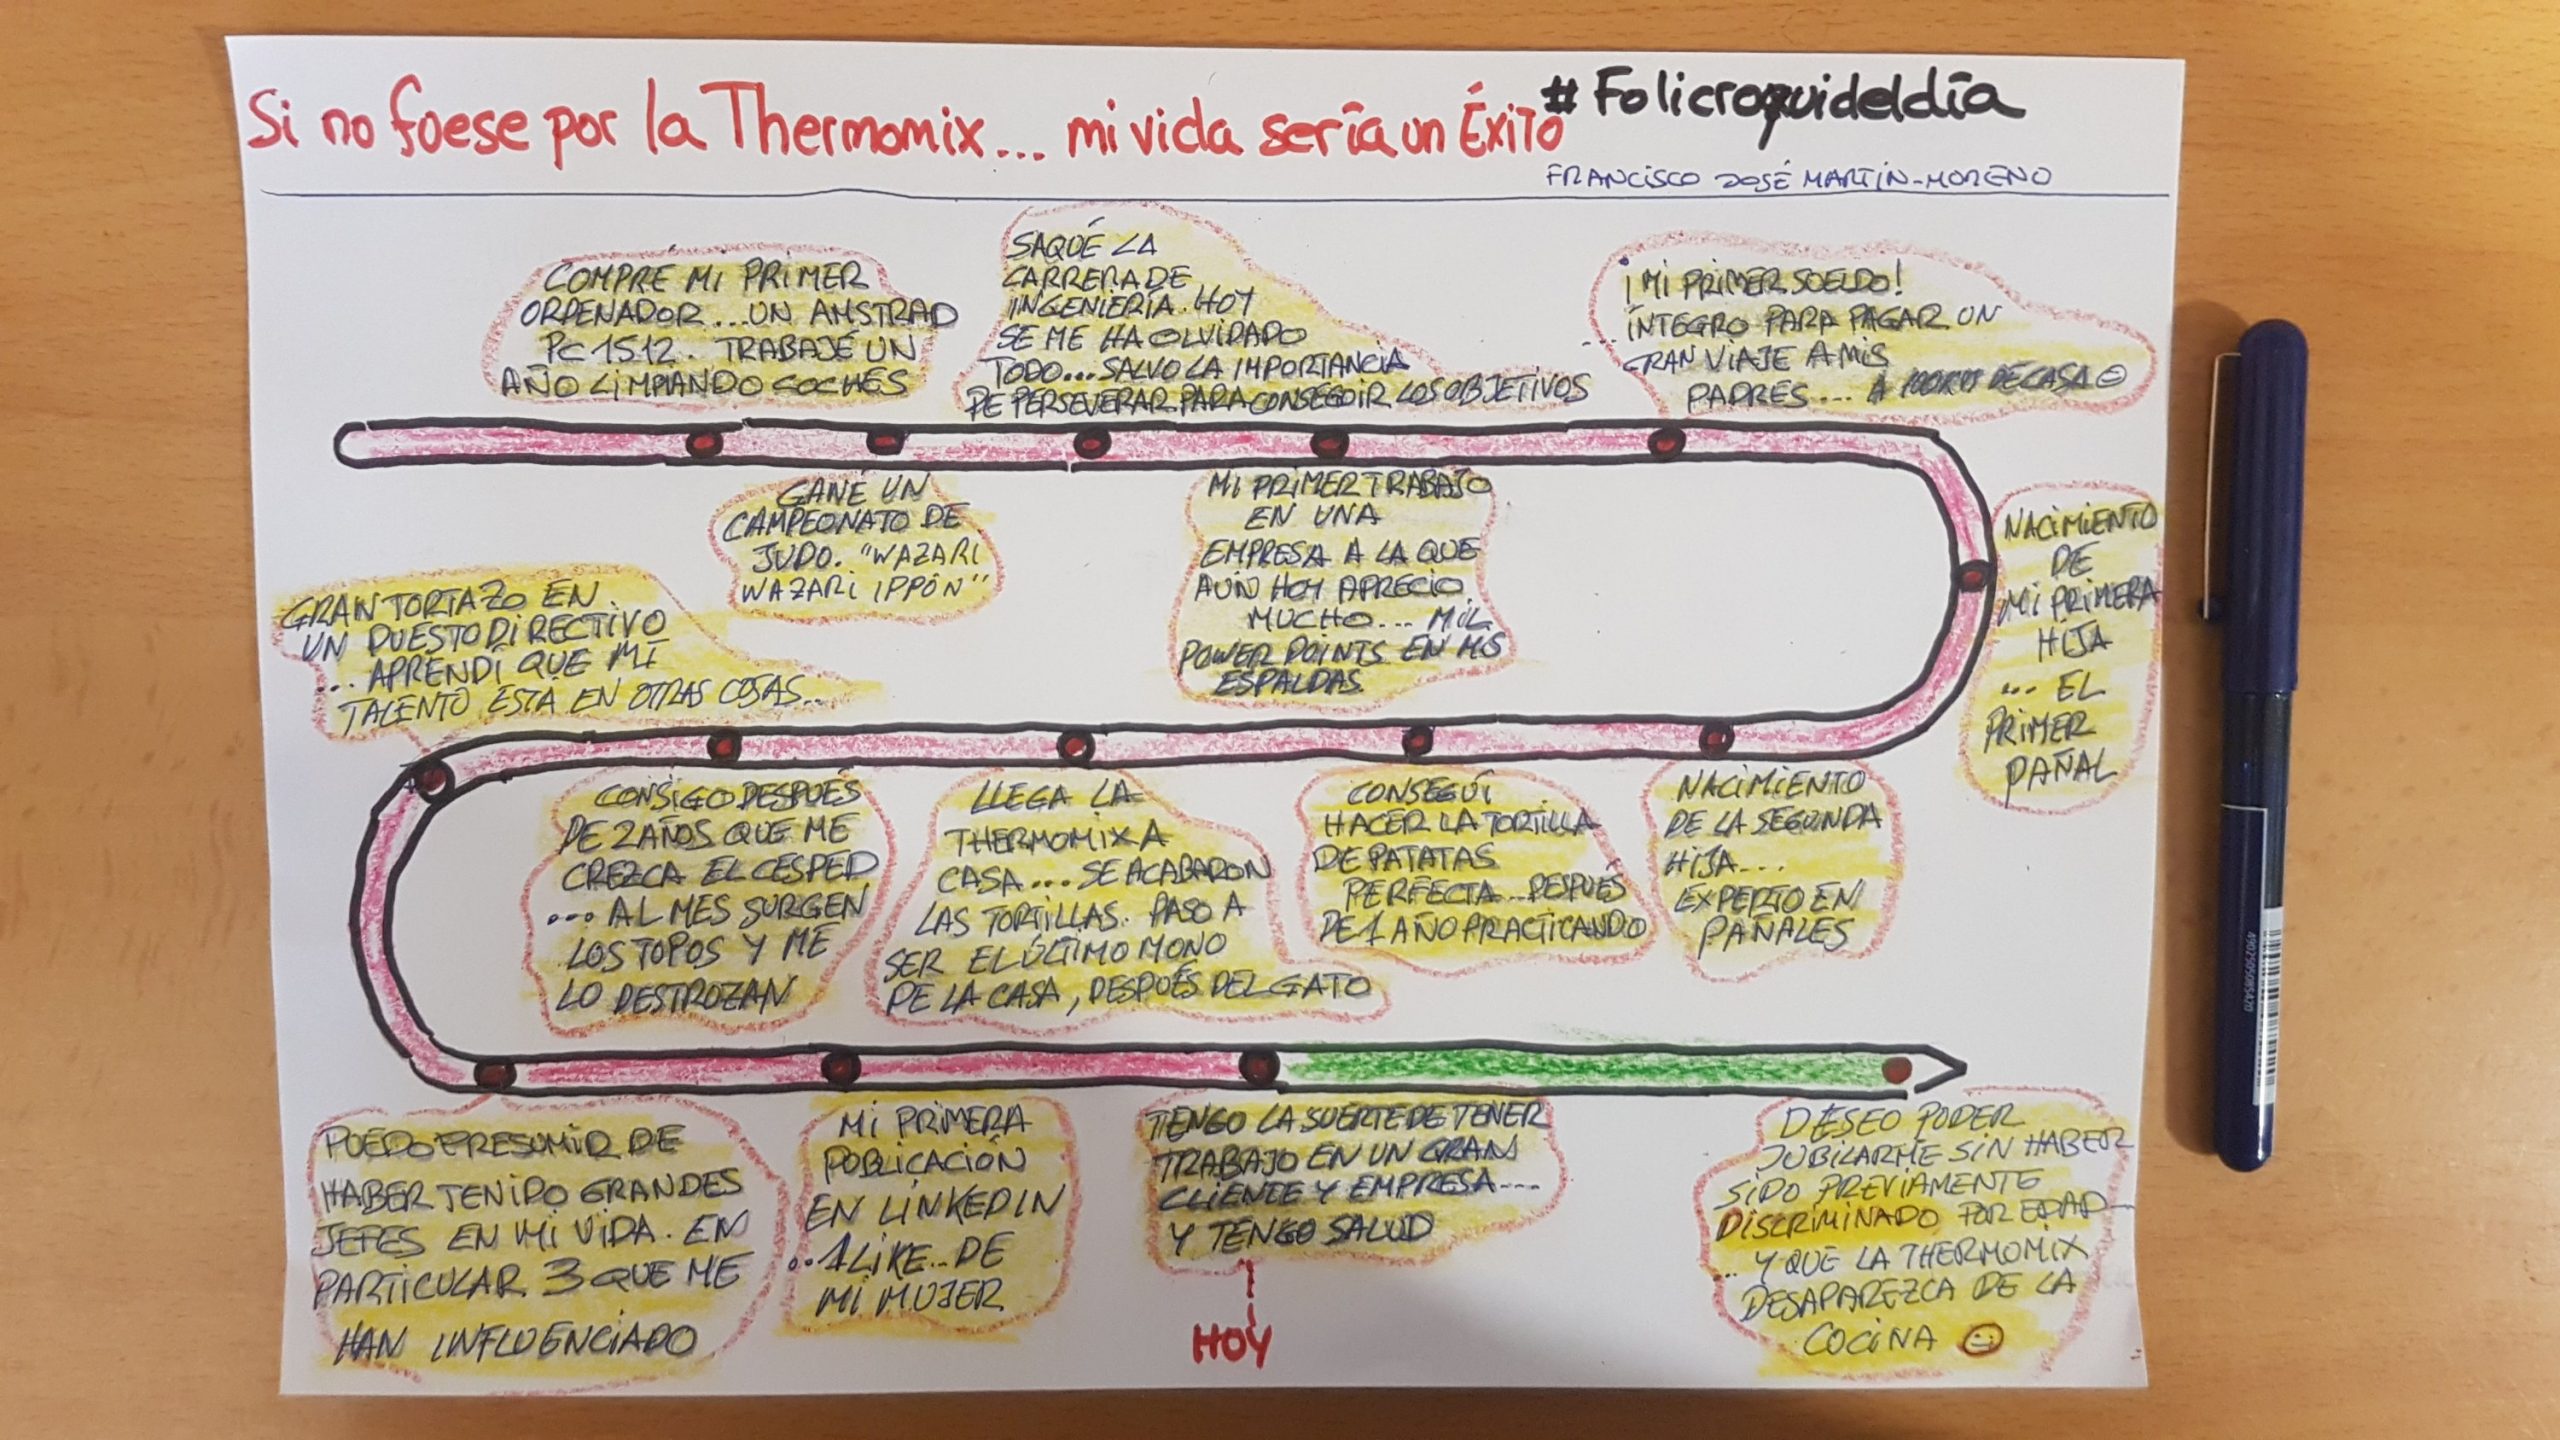 Si no fuese por la Thermomix... mi vida sería un Éxito
#Folicroquideldía
FRANCISCO JOSÉ MARTÍN-MORENO
COMPRÉ MI PRIMER
ORDENADOR...UN AMSTRAD
PC 1512. TRABAJÉ UN
AÑO LIMPIANDO COCHES
GANÉ UN
CAMPEONATO DE
JUDO. "WAZARI
WAZARI IPPÓN"
SAQUÉ LA
CARRERA DE
INGENIERÍA. HOY
SE ME HA OLVIDADO
TODO...SALVO LA IMPORTANCIA
DE PERSEVERAR PARA CONSEGUIR LOS OBJETIVOS
MI PRIMER TRABAJO
EN UNA
EMPRESA A LA QUE
AÚN HOY APRECIO
MUCHO... MIL
POWER POINTS EN MIS
ESPALDAS
¡MI PRIMER SUELDO!
... ÍNTEGRO PARA PAGAR UN
GRAN VIAJE A MIS
PADRES... A 100KMS DE CASA
NACIMIENTO
DE
MI PRIMERA
HIJA
... EL
PRIMER
PAÑAL
NACIMIENTO
DE LA SEGUNDA
HIJA...
EXPERTO EN
PAÑALES
CONSEGUÍ
HACER LA TORTILLA
DE PATATAS
PERFECTA...DESPUÉS
DE 1 AÑO PRACTICANDO
LLEGA LA
THERMOMIX A
CASA...SE ACABARON
LAS TORTILLAS. PASO A
SER EL ÚLTIMO MONO
DE LA CASA, DESPUÉS DEL GATO
CONSIGO DESPUÉS
DE 2 AÑOS QUE ME
CREZCA EL CESPED
... AL MES SURGEN
LOS TOPOS Y ME
LO DESTROZAN
GRAN TORTAZO EN
UN PUESTO DIRECTIVO
... APRENDÍ QUE MI
TALENTO ESTÁ EN OTRAS COSAS...
PUEDO PRESUMIR DE
HABER TENIDO GRANDES
JEFES EN MI VIDA. EN
PARTICULAR 3 QUE ME
HAN INFLUENCIADO
MI PRIMERA
PUBLICACIÓN
EN LINKEDIN
...1 LIKE...DE
MI MUJER
TENGO LA SUERTE DE TENER
TRABAJO EN UN GRAN
CLIENTE Y EMPRESA....
Y TENGO SALUD
HOY
DESEO PODER
JUBILARME SIN HABER
SIDO PREVIAMENTE
DISCRIMINADO POR EDAD...
... Y QUE LA THERMOMIX
DESAPAREZCA DE LA
COCINA